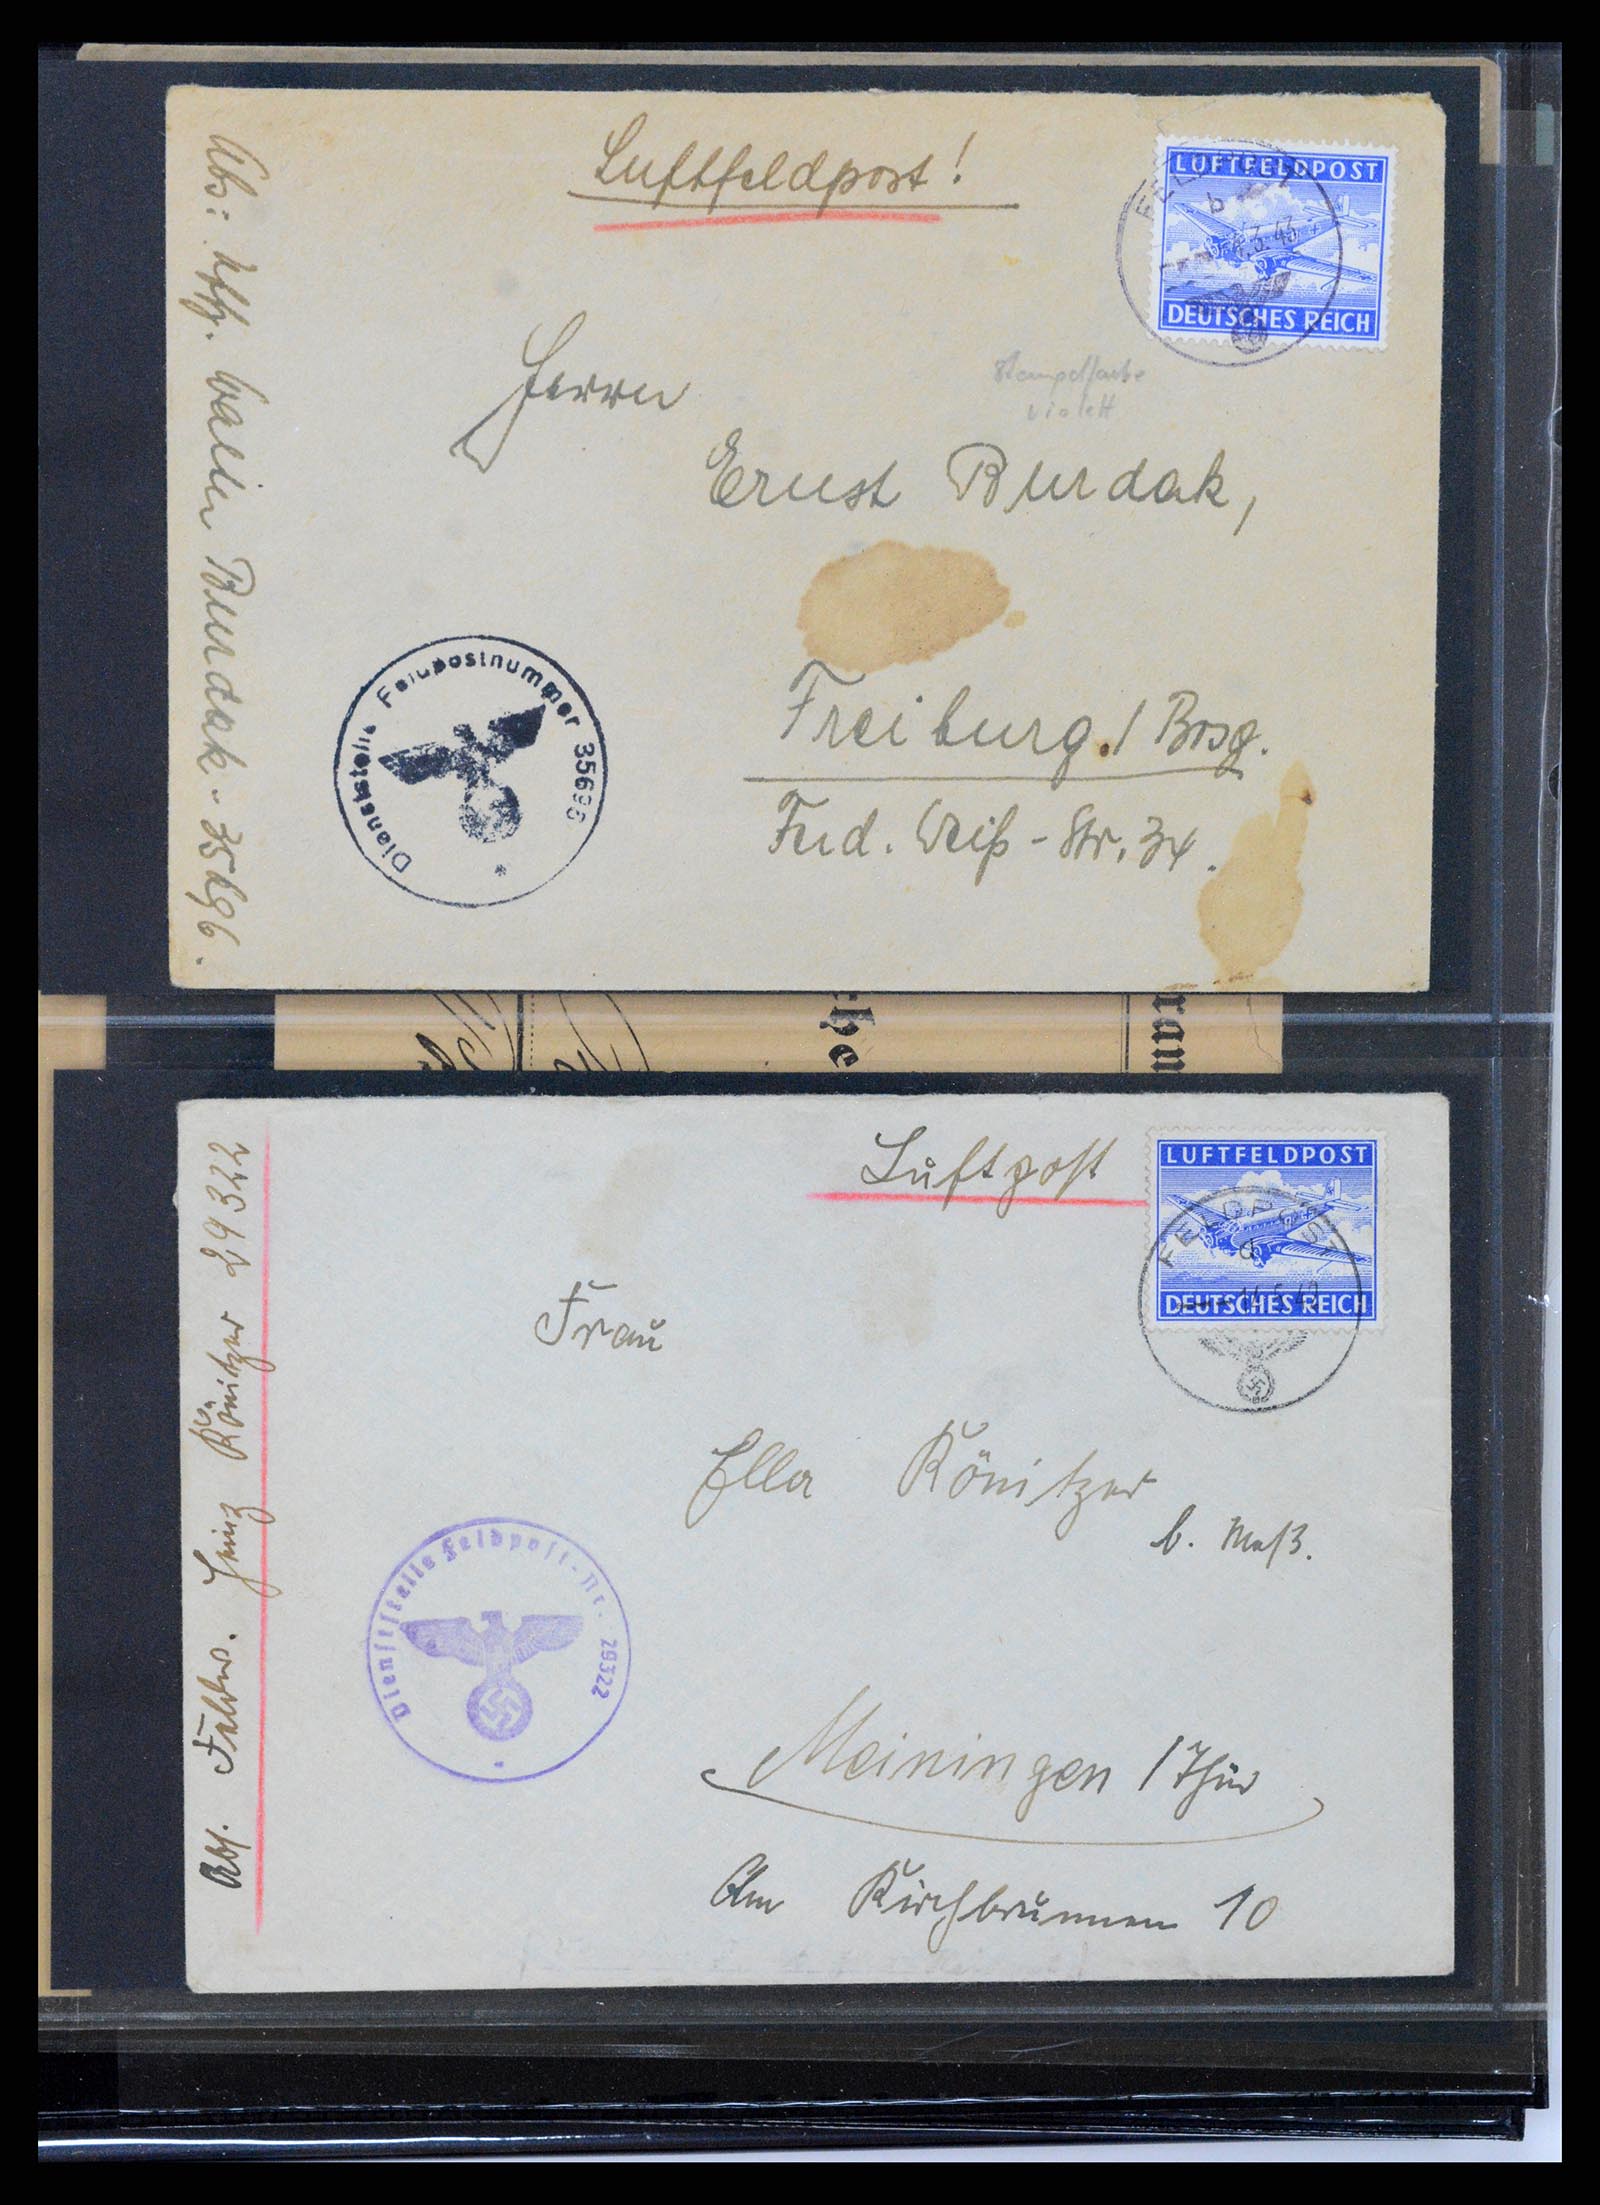 Luftfeldpost!
LUFTFELDPOST
DEUTSCHES REICH
FELDPOST
b
3.43
Stempelfarbe
violett
Abs: Uffz. Walter Burdak - 35696.
Herrn
Ernst Burdak,
Freiburg./Brsg.
Ferd. Weiß-Str. 34.
Dienststelle Feldpostnummer 35696
*
che
ram
Luftpost
LUFTFELDPOST
DEUTSCHES REICH
FELDPOST
d
14.5.42
Abs. Feldw. Heinz Könitzer 29322
Frau
Ella Könitzer
b.
Meiningen / Thür
Am Kirchbrunnen 10
Dienststelle Feldpost-Nr. 29322